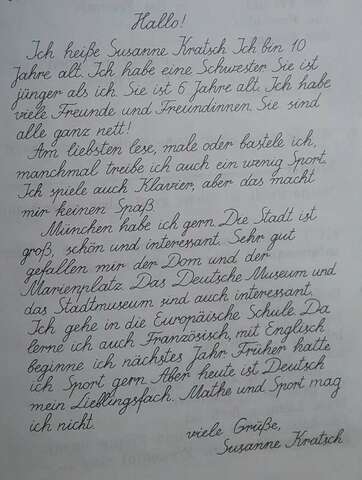 Hallo!
Ich heiße Susanne Kratsch Ich bin 10
Jahre alt. Ich habe eine Schwester Sie ist
jünger als ich. Sie ist 6 Jahre alt. Ich habe
viele Freunde und Freundinnen Sie sind
alle ganz nett!
Am liebsten lese, male oder bastele ich,
manchmal treibe ich auch ein wenig Sport.
Ich spiele auch Klavier, aber das macht
mir keinen Spaß
München habe ich gern. Die Stadt ist
groß, schön und interessant. Sehr gut
gefallen mir der Dom und der
Marienplatz. Das Deutsche Museum und
das Stadtmuseum sind auch interessant.
Ich gehe in die Europäische Schule. Da
lerne ich auch Französisch, mit Englisch
beginne ich nächstes Jahr Früher hatte
ich Sport gern. Aber heute ist Deutsch
mein Lieblingsfach. Mathe und Sport mag
ich nicht.
viele Grüße,
Susanne Kratsch